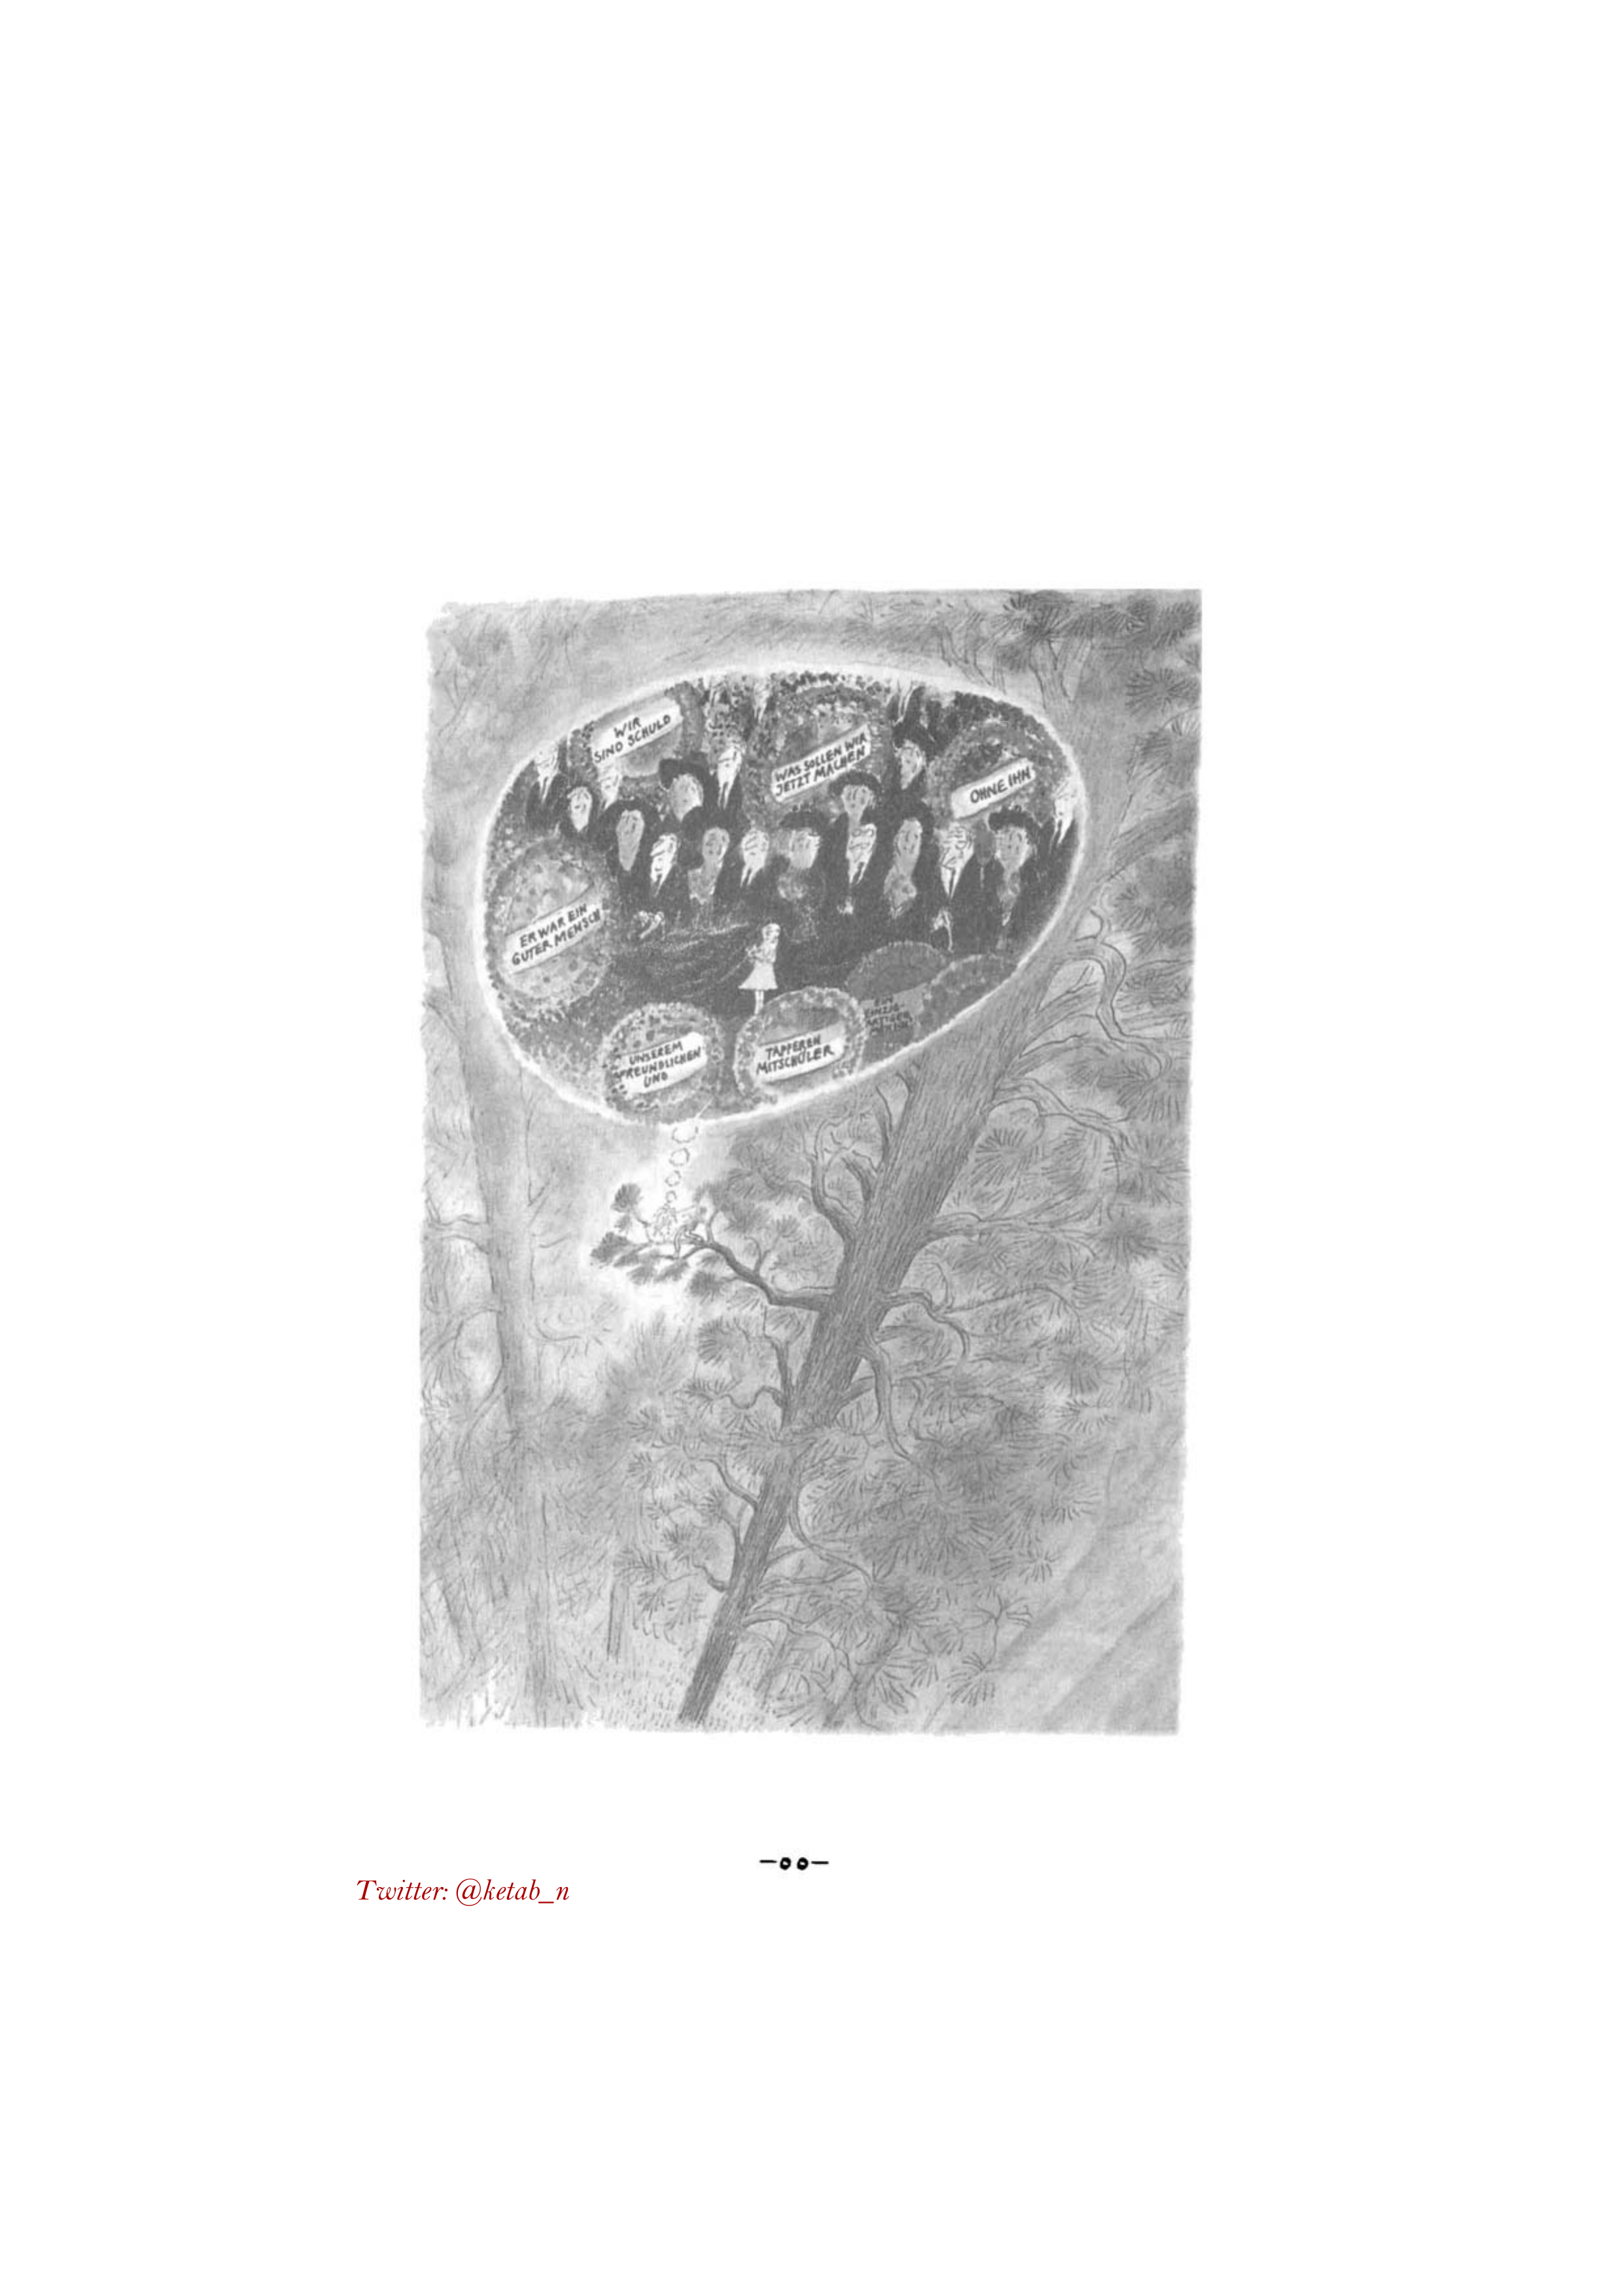 WIR
SIND SCHULD
WAS SOLLEN WIR
JETZT MACHEN
OHNE IHN
ER WAR EIN
GUTER MENSCH
EIN
EINZIG
UNSEREM
FREUNDLICHEN
UND
TAPFEREN
MITSCHÜLER
-٥٥-
Twitter: @ketab_n